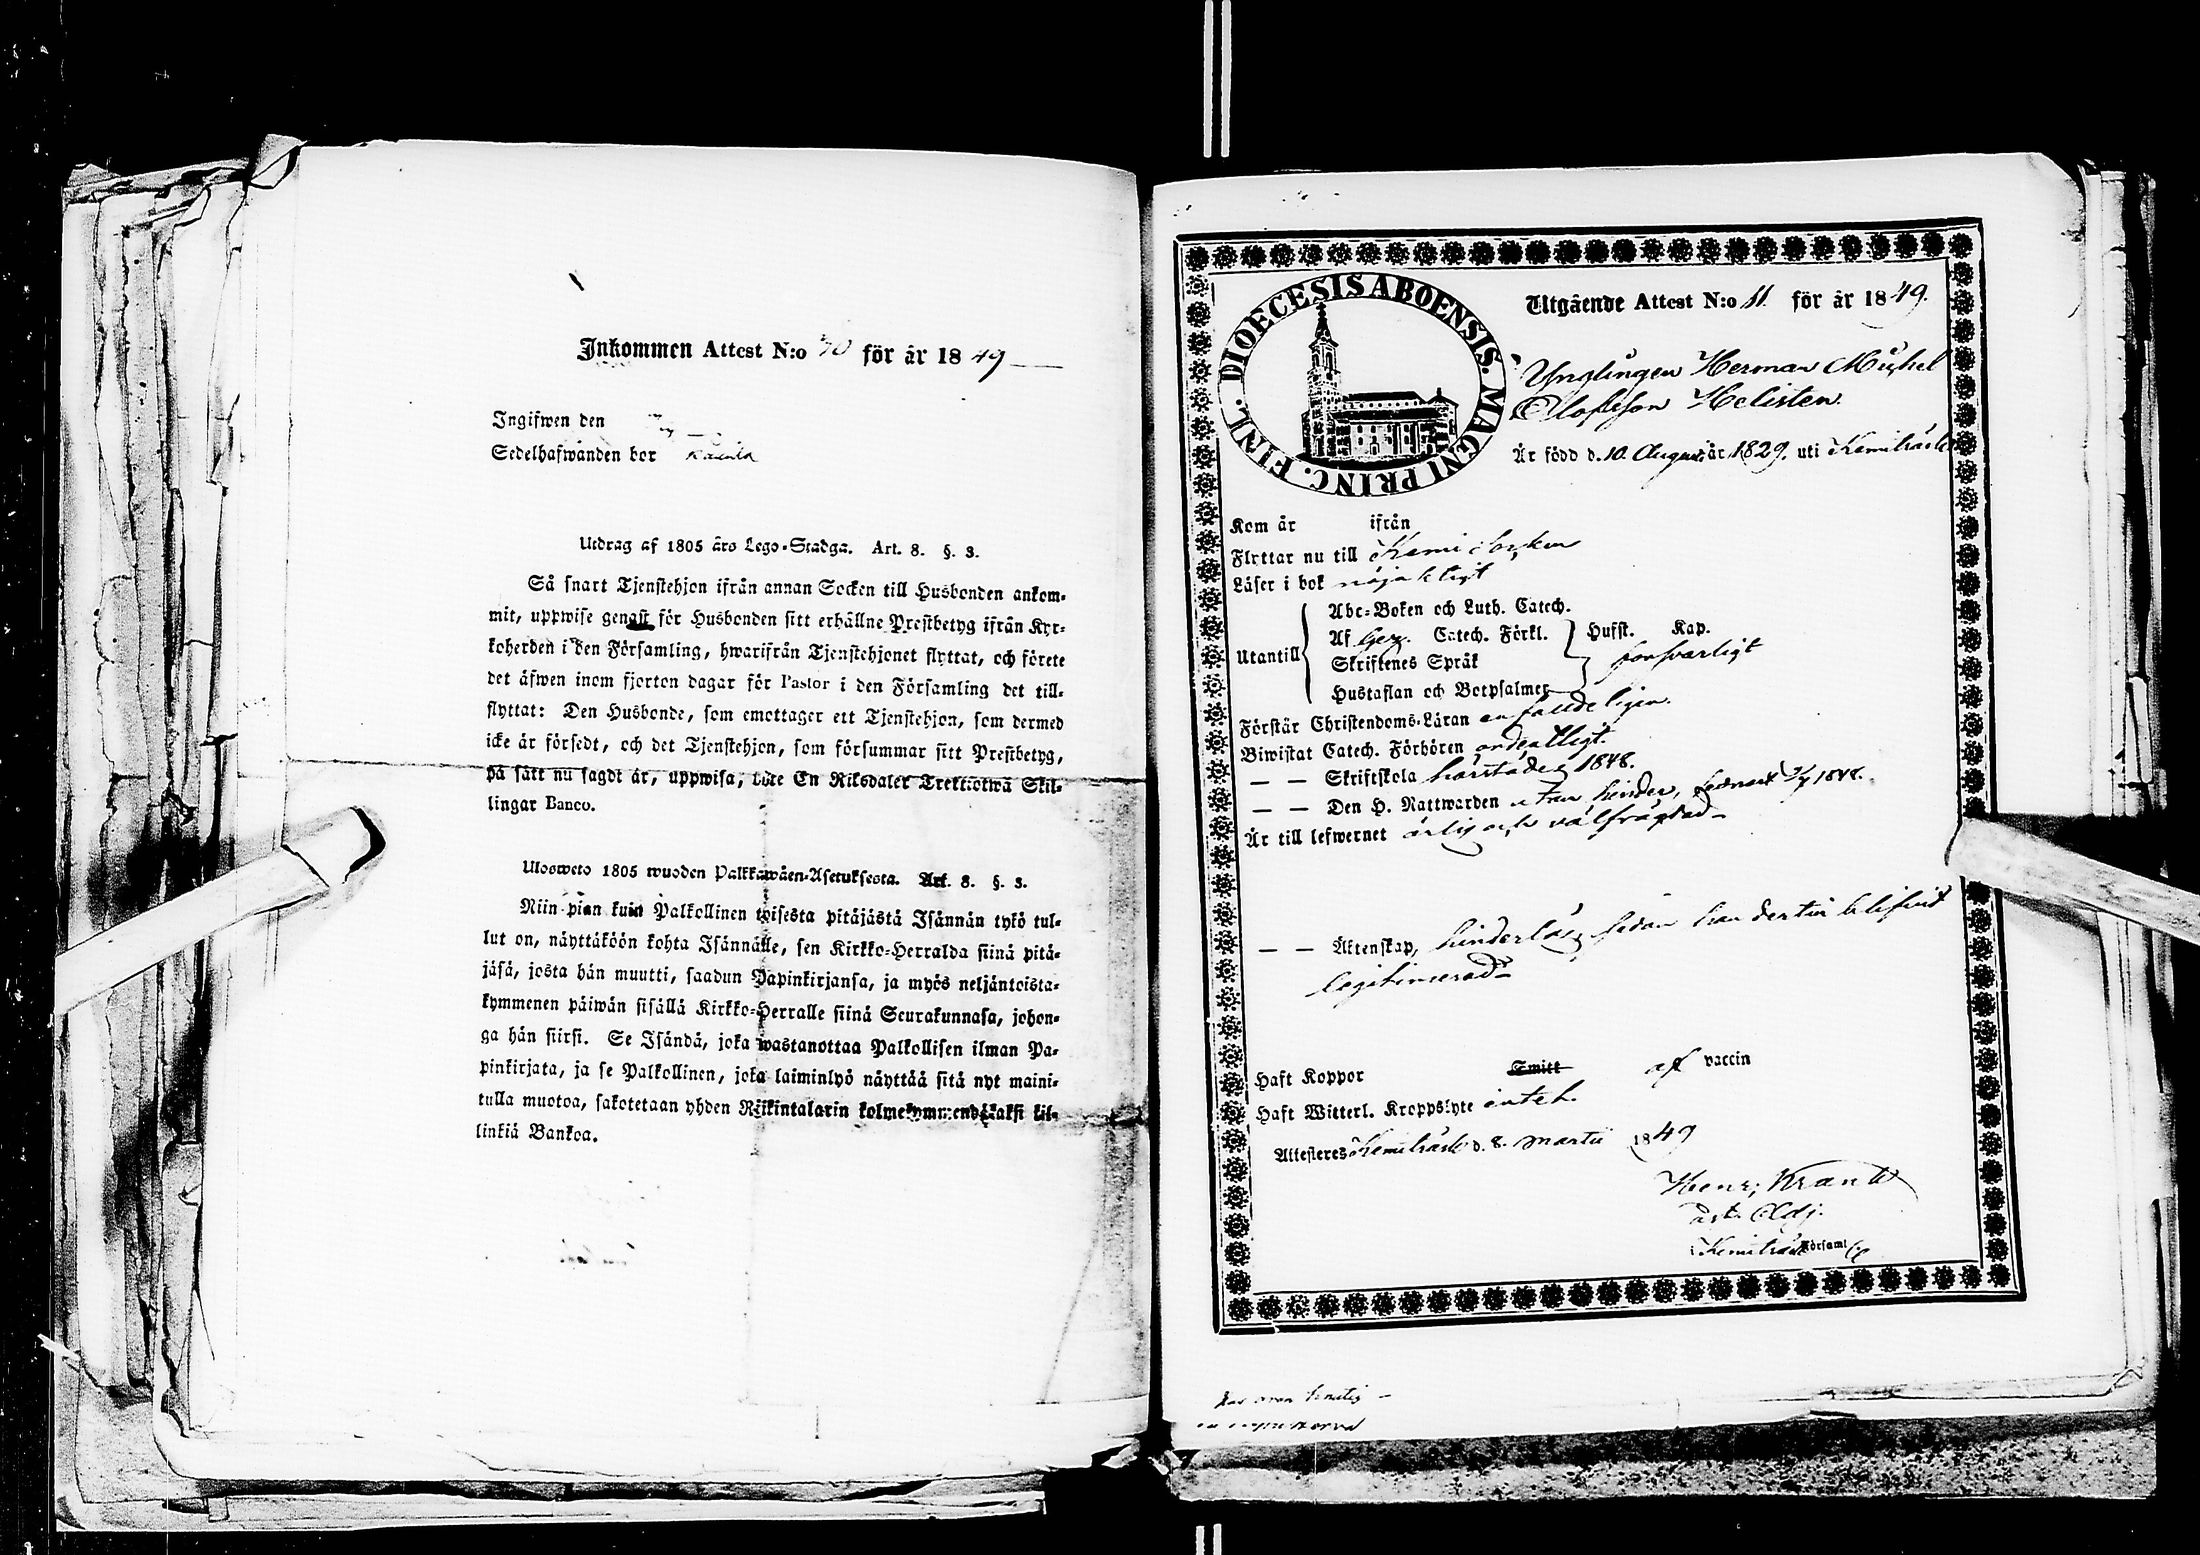 Inkommen Attest N:o 70 för år 1849
Ingifwen den
Sedelhafwanden bor
Utdrag af 1805 års Lego-Stadga. Art. 8. §. 3.
Så snart Tjenstehjon ifrån annan Socken till Husbonden ankom-
mit, uppwise genast för Husbonden sitt erhållne Prestbetyg ifrån Kyr-
koherden i den Församling, hwarifrån Tjenstehjonet flyttat, och förete
det äfwen inom fjorton dagar för Pastor i den Församling det till-
flyttat: Den Husbonde, som emottager ett Tjenstehjon, som dermed
icke är försedt, och det Tjenstehjon, som försummar sitt Prestbetyg,
på sätt nu sagdt är, uppwisa, böte En Riksdaler Trettiotwå Skil-
lingar Banco.
Ulosweto 1805 wuoden Palkkawäen-Asetuksesta. Art. 8. §. 3.
Niin pian kuin Palkollinen toisesta pitäjästä Isännän tykö tul-
lut on, näyttäköön kohta Isännälle, sen Kirkko-Herralda siinä pitä-
jäsä, josta hän muutti, saadun Papinkirjansa, ja myös neljäntoista-
kymmenen päiwän sisällä Kirkko-Herralle siinä Seurakunnasa, johon-
ga hän siirsi. Se Isändä, joka wastanottaa Palkollisen ilman Pa-
pinkirjata, ja se Palkollinen, joka laiminlyö näyttää sitä nyt maini-
tulla muotoa, sakotetaan yhden Riikintalarin kolmekymmendäkaksi kil-
linkiä Bankoa.
DIOECESIS ABOENSIS. MAGNI PRINC. FINL.
Utgående Attest N:o 11. för år 1849.
Ynglingen Herman Michel
Olofsson Helisten.
Är född d. 10. Augusti år 1829. uti Kemiträsk
Kom år ifrån
Flyttar nu till Kemi Socken
Läser i bok nöjaktigt
Utantill
Abc-Boken och Luth. Catech.
Af Catech. Förkl.
Skriftenes Språk
Hustaflan och Botpsalmer
Husst. Kap.
försvarligt
Förstår Christendoms-Läran enfaldeligen.
Biwistat Catech. Förhören ordentligt.
— — Skriftskola härstädes 1848.
— — Den H. Nattwarden utan hinder, sednast 1848.
Är till lefwernet ärlig och välfrägdad
— — Äktenskap, hinderlös, sedan han dertill blifvit
legitimerad
Haft Koppor Smitt af vaccin
Haft Witterl. Kroppslyte intet.
Attesteras Kemiträsk d. 8. Martii 1849
Henr:
Adj.
i Kemiträsk Församl.